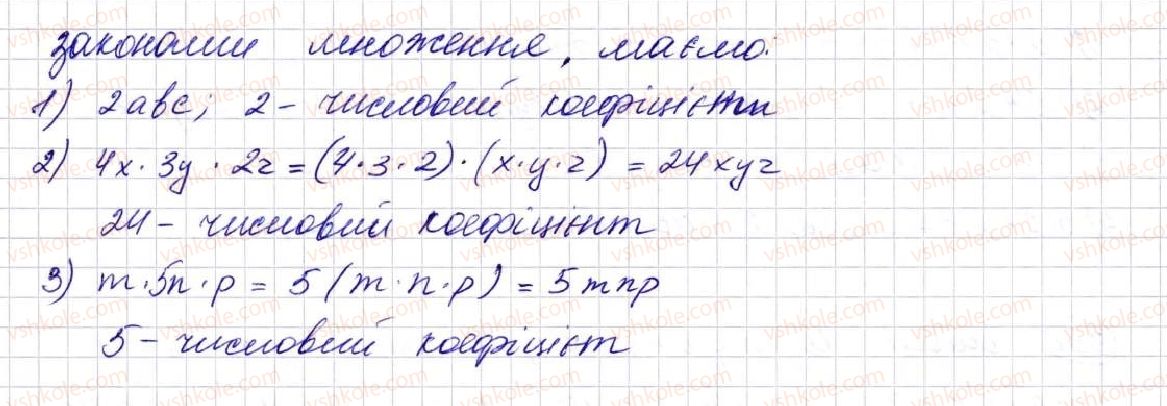 законами множення, маємо:
1) 2abc; 2 - числовий коефіцієнт
2) 4x · 3y · 2z = (4 · 3 · 2) · (x · y · z) = 24xyz
24 - числовий коефіцієнт
3) m · 5n · p = 5 (m · n · p) = 5mnp
5 - числовий коефіцієнт